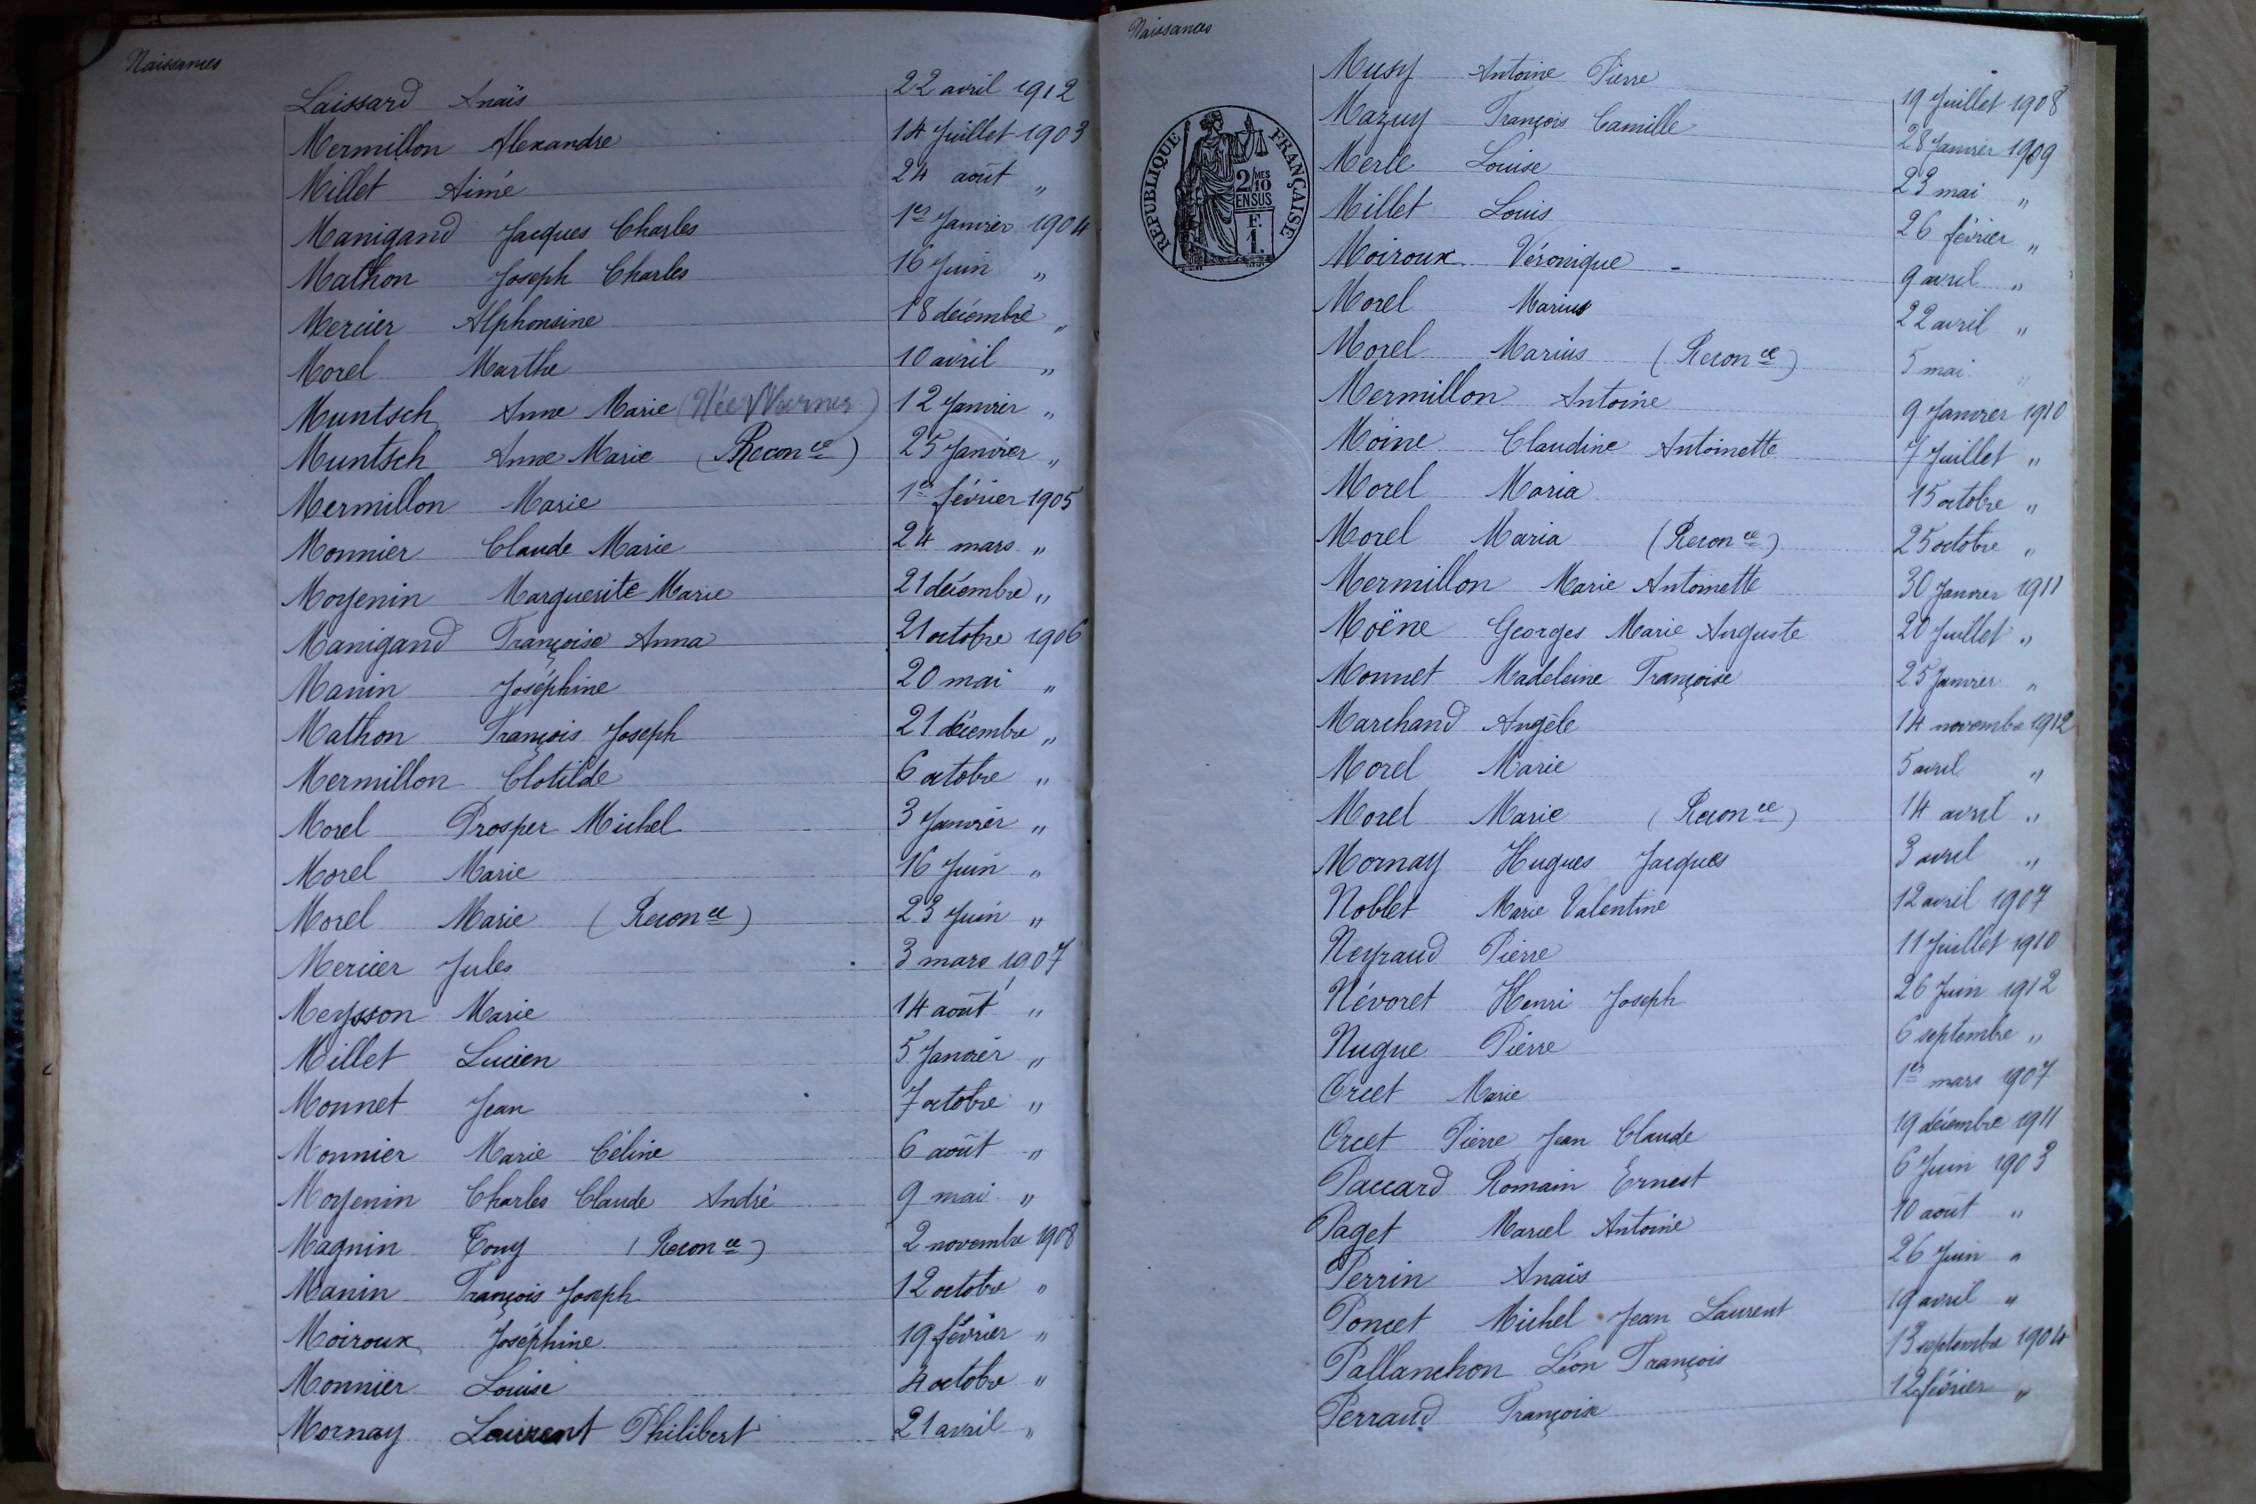 Naissances
Laissard Anaïs 22 avril 1912
Mermillon Alexandre 14 Juillet 1903
Millet Aimé 24 août "
Manigand Jacques Charles 1er Janvier 1904
Mathon Joseph Charles 16 Juin "
Mercier Alphonsine 18 décembre "
Morel Marthe 10 avril "
Muntsch Anne Marie (Née Woerner) 12 Janvier "
Muntsch Anne Marie (Reconce) 25 Janvier "
Mermillon Marie 1er février 1905
Monnier Claude Marie 24 mars "
Moyenin Marguerite Marie 21 décembre "
Manigand Françoise Anna 21 octobre 1906
Manin Joséphine 20 mai "
Mathon François Joseph 21 décembre "
Mermillon Clotilde 6 octobre "
Morel Prosper Michel 3 Janvier "
Morel Marie 16 Juin "
Morel Marie (Reconce) 23 Juin "
Mercier Jules 3 mars 1907
Meysson Marie 14 août "
Millet Lucien 5 Janvier "
Monnet Jean 7 octobre "
Monnier Marie Céline 6 août "
Moyenin Charles Claude André 9 mai "
Magnin Tony (Reconce) 2 novembre 1908
Manin François Joseph 12 octobre "
Moiroux Joséphine 19 février "
Monnier Louise 4 octobre "
Mornay Laurent Philibert 21 avril "
Naissances
RÉPUBLIQUE FRANÇAISE
2/10 MES
EN SUS
F.
1.
Musy Antoine Pierre 19 Juillet 1908
Mazuy François Camille 28 Janvier 1909
Merle Louise 23 mai "
Millet Louis 26 février "
Moiroux Véronique 9 avril "
Morel Marius 22 avril "
Morel Marius (Reconce) 5 mai "
Mermillon Antoine 9 Janvier 1910
Moine Claudine Antoinette 7 Juillet "
Morel Maria 15 octobre "
Morel Maria (Reconce) 25 octobre "
Mermillon Marie Antoinette 30 Janvier 1911
Moëne Georges Marie Auguste 20 Juillet "
Monnet Madeleine Françoise 25 Janvier "
Marchand Angèle 14 novembre 1912
Morel Marie 5 avril "
Morel Marie (Reconce) 14 avril "
Mornay Hugues Jacques 3 avril "
Noblet Marie Valentine 12 avril 1907
Neyraud Pierre 11 Juillet 1910
Névoret Henri Joseph 26 Juin 1912
Nugue Pierre 6 septembre "
Orcet Marie 1er mars 1907
Orcet Pierre Jean Claude 19 décembre 1911
Paccard Romain Ernest 6 Juin 1903
Paget Marcel Antoine 10 août "
Perrin Anaïs 26 Juin "
Poncet Michel Jean Laurent 19 avril "
Pallanchon Léon François 13 septembre 1904
Perraud Françoise 12 février "